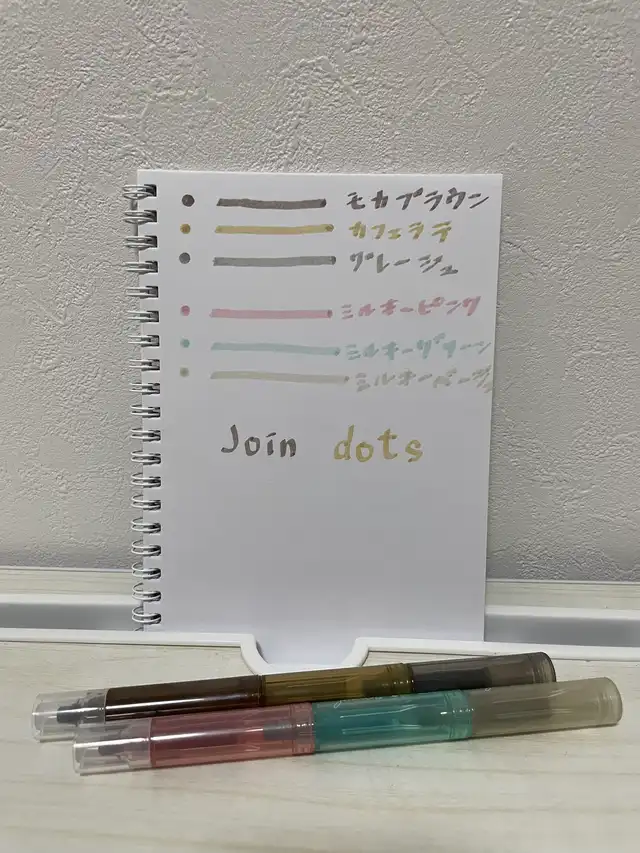 モカブラウン
カフェラテ
グレージュ
ミルキーピンク
ミルキーグリーン
ミルキーベージュ
Join dots